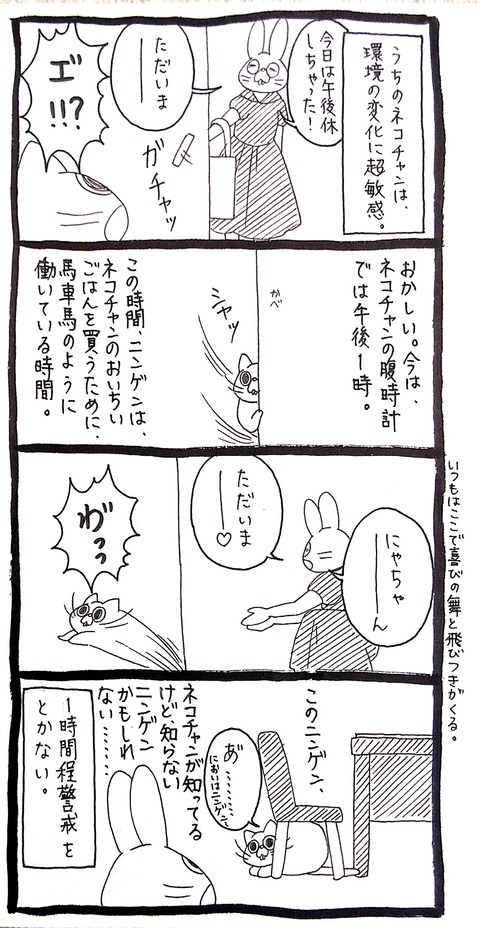 うちのネコチャンは、
環境の変化に超敏感。
今日は午後休
しちゃった！
ただいま
ー
ガチャッ
エ゛
!!?
おかしい。今は、
ネコチャンの腹時計
では午後1時。
かべ
シャッ
この時間、ニンゲンは、
ネコチャンのおいちい
ごはんを買うために、
馬車馬のように
働いている時間。
いつもはここで喜びの舞と飛びつきがくる。
にゃちゃ
ーん
ただいま
ー♡
わ゛っっ
このニンゲン、
あ゛……
においはニンゲン
ネコチャンが知ってる
けど、知らない
ニンゲン
かもしれ
ない………
1時間程警戒を
とかない。